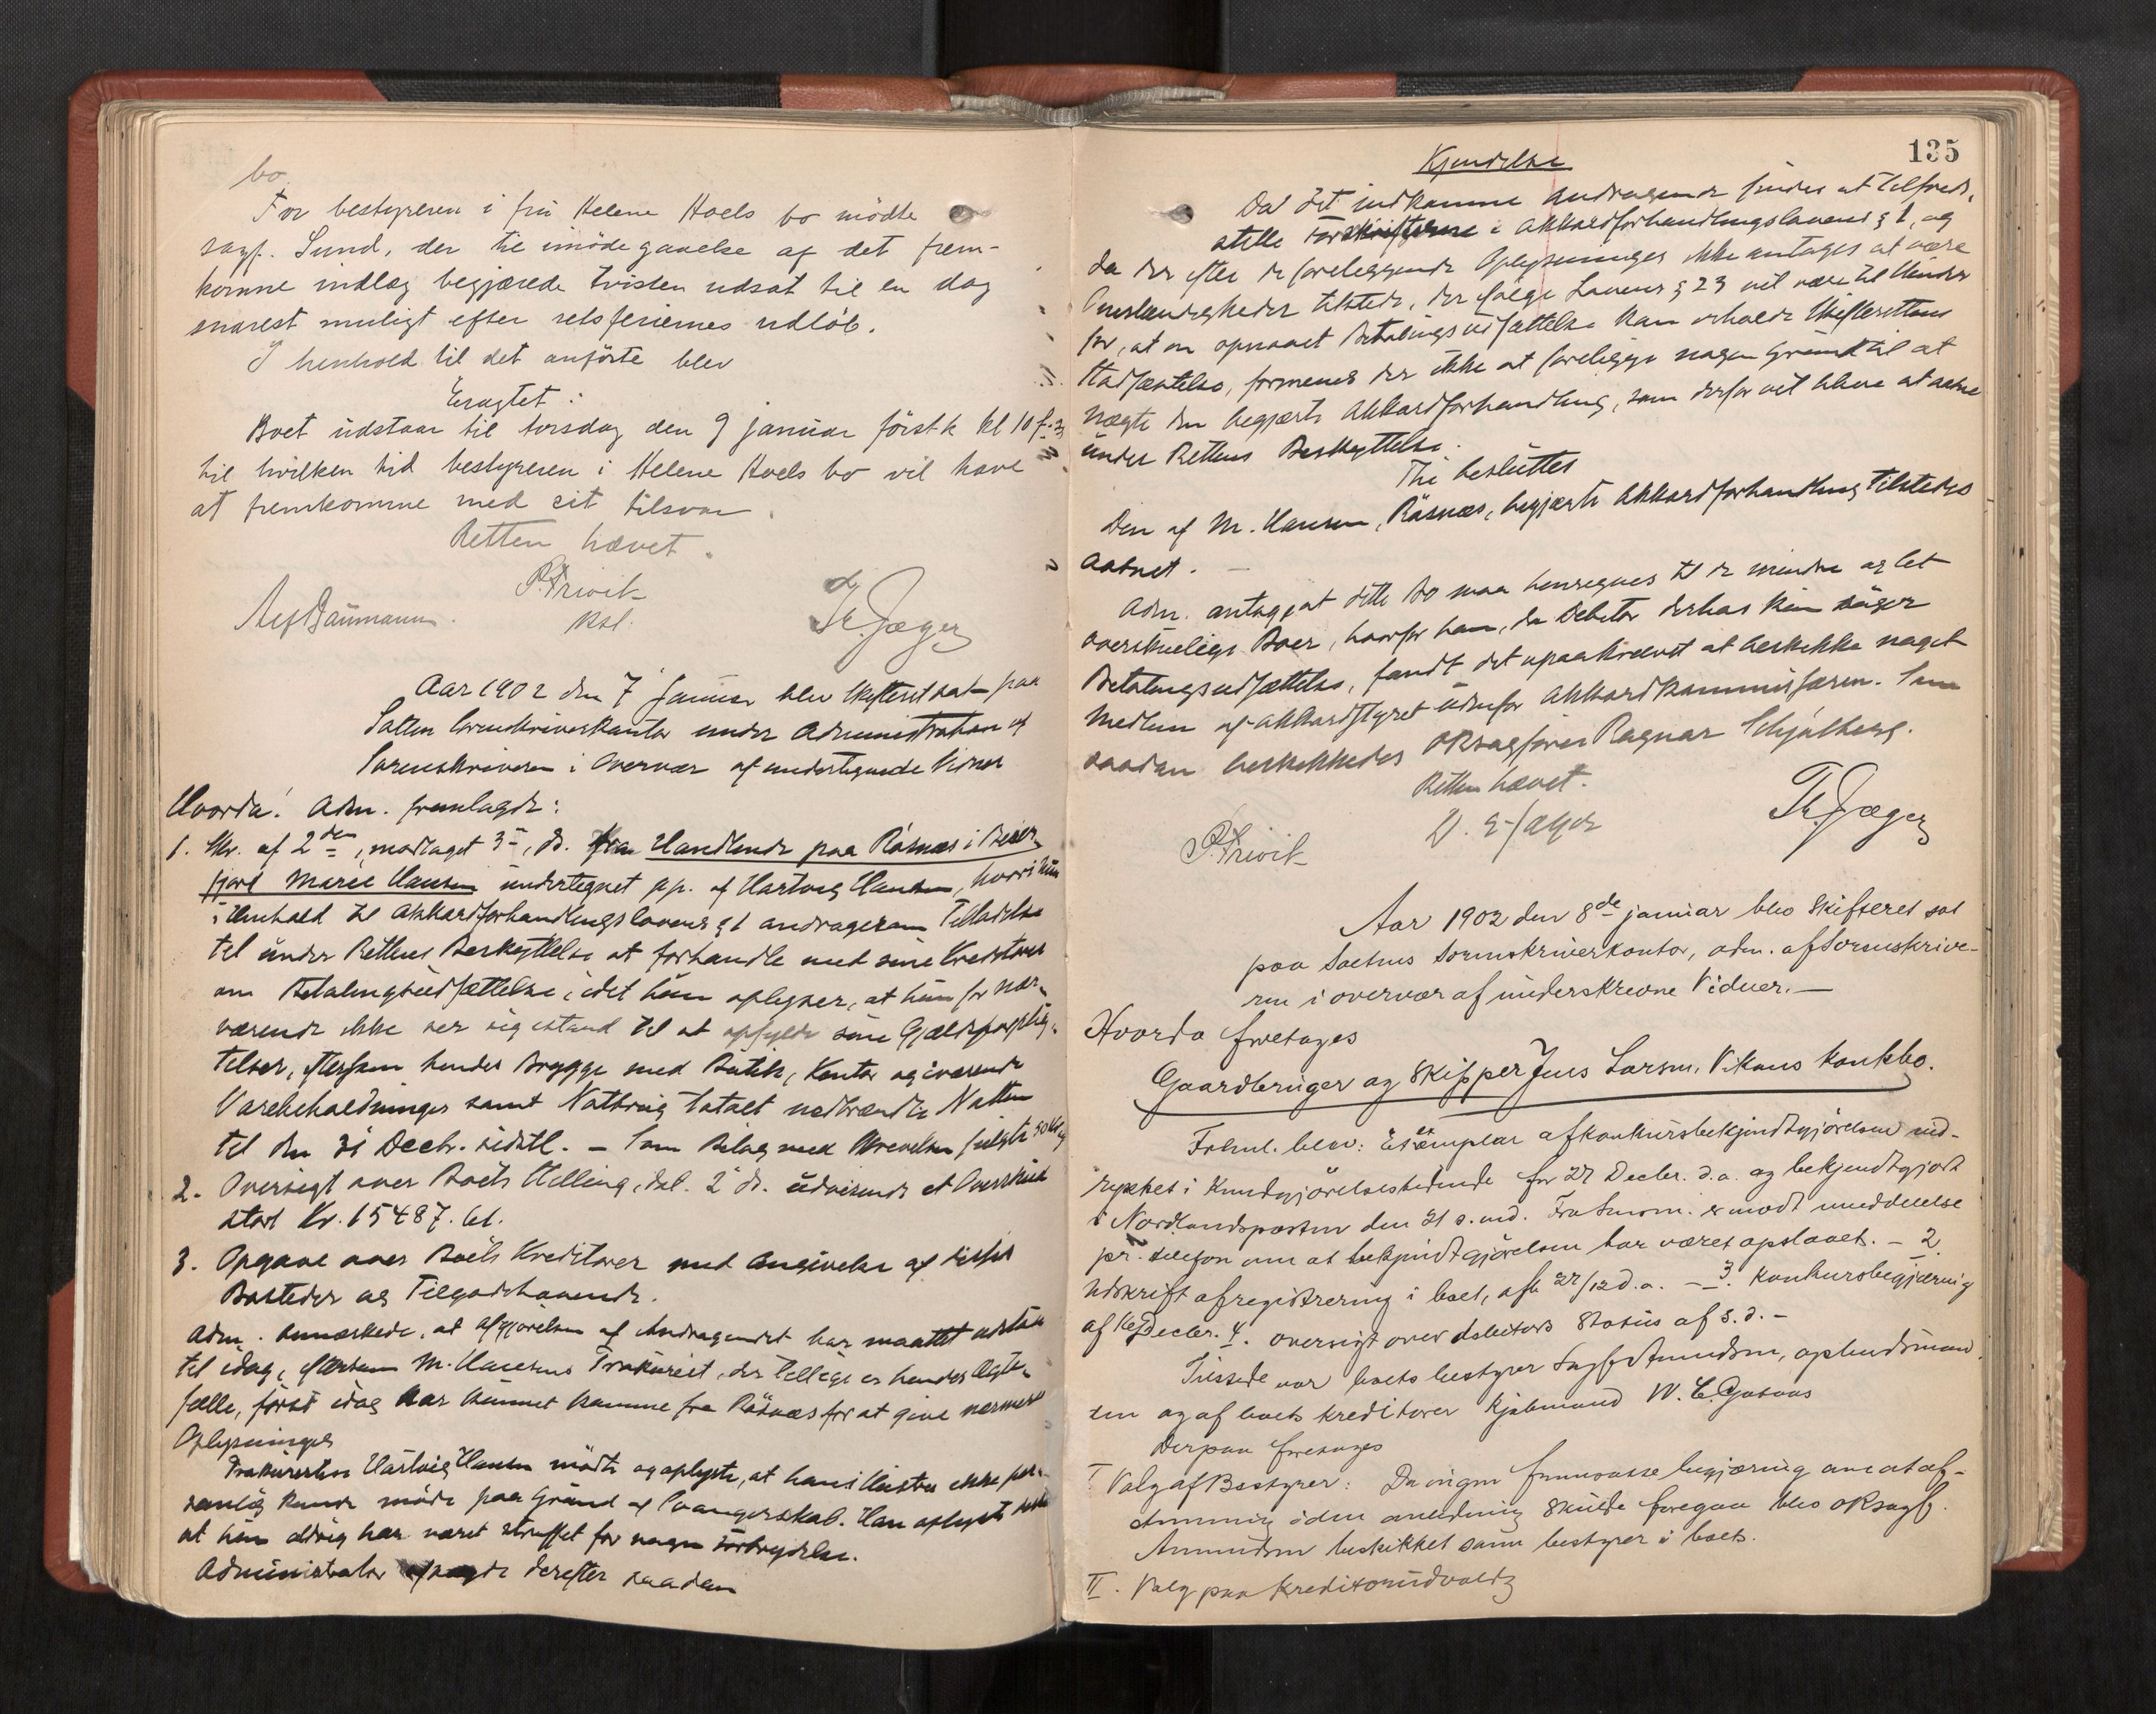 bo
For bestyreren i fru Helene Hoels bo mödte
sagf. Sund, der til imödegaaelse af det frem-
komne indlæg begjærede tvisten udsat til en dag
snarest muligt efter retsferiernes udløb.
I henhold til det anförte blev
Eragtet:
Boet udstaar til torsdag den 9 januar förstk kl 10 f.m.
til hvilken tid bestyreren i Helene Hoels bo vil have
at fremkomme med sit tilsvar.
Retten hævet.
P. Trivik
Kst.
Th. Jæger
Aar 1902 den 7 Januar blev Skifteret sat paa
Salten Sorenskriverkontor under Administration af
Sorenskriveren i Overvær af undertegnede Vidner
Hvorda: Adm. fremlagde:
1. Skr. af 2den, modtaget 3, ds. fra Handlende paa Råsnæs i Beier-
fjord Marie Hansen undertegnet pp. af Hartvig Hansen, hvori hun
i Henhold til Akkordforhandlingslovens § 1 andrager om Tilladelse
til under Rettens Beskyttelse at forhandle med sine Kreditorer
om Betalingsudsættelse, idet hun oplyser, at hun for nær-
værende ikke ser sig istand til at opfylde sine Gjældsforplig-
telser, eftersom hendes Brygge med Butik, Kontor og iværende
Varebeholdninger samt Nothrug totalt nedbrændte Natten
til den 31 Decbr. sidstl. - Som Bilag med Skrivelsen fulgte 50 Kr og
2. Oversigt over Boets Stilling, dat. 2 ds. udvisende et Overskud
stort Kr. 15487.61.
3. Opgave over Boets Kreditorer med Angivelse af disses
Bosteder og Tilgodehavende.
Adm. bemærkede, at Afgjørelsen af Andragendet har maattet udstaa
til idag, eftersom M. Hansens Prokurist, der tillige er hendes Ægte-
fælle, først idag har kunnet komme fra Råsnæs for at give nærmere
Oplysninger
Prokuristen Hartvig Hansen mødte og oplyste, at hans Hustru ikke per-
sonlig kunde møde paa Grund af Svangerskab. Han oplyste
at hun aldrig har været straffet for nogen Forbrydelse.
Administrator afsagde derefter saadan
135
Kjendelse
Da det indkomne Andragende findes at tilfreds-
stille Forskrifterne i Akkordforhandlingslovens § 1, og
da der efter de foreliggende Oplysninger ikke antages at være
Omstændigheder tilstede, der ifølge Lovens § 23 vil være til Hinder
for, at en opnaaet Betalingsudsættelse kan erholde Skifterettens
Stadfæstelse, formenes der ikke at foreligge nogen Grund til at
nægte den begjærte Akkordforhandling, som derfor vil blive at aabne
under Rettens Beskyttelse.
Thi besluttes
Den af M. Hansen, Råsnæs, begjærte Akkordforhandling tilstedes
aabnet. -
Adm. antager, at dette Bo maa henregnes til de mindre og let
overskuelige Boer, hvorfor han, da Debitor derhos kun søger
Betalingsudsættelse, fandt det upaakrævet at beskikke noget
Medlem af Akkordstyret udenfor Akkordkommissæren. Som
saadan beskikkedes ORsagfører Ragnar Schjølberg.
Retten hævet.
P. Trivik
D. E. Jæger
Th. Jæger
Aar 1902 den 8de januar blev Skifteret sat
paa Saltens Sorenskriverkontor, adm. af Sorenskrive-
ren i overvær af underskrevne Vidner. -
Hvorda foretoges
Gaardbruger og Skipper Jens Larsen, Vikans konkbo.
Fremt. blev: Et exemplar af konkursbekjendtgjörelsen ind-
rykket i Kundgjörelsestidende for 27 Decbr. d.a. og bekjendtgjort
i Nordlandsposten den 31 s.md. Fra er modt meddelelse
pr. telefon om at bekjendtgjörelsen har været opslaaet. - 2
Udskrift af registrering i boet, afh 27/12 d.a. - 3. Konkursbegjæring
af Decbr. 4. oversigt over debitors Status af s.d. -
Tilstede var boets bestyrer Sagf. Amundsen, opbudsman
den og af boets kreditorer Kjöbmand W. C.
Derpaa foretoges
I Valg af Bestyrer: Da ingen fremsatte begjæring om at af-
stemning i den anledning skulde foregaa blev ORsagf.
Amundsen beskikket som bestyrer i boet.
II. Valg paa Kreditorudvalg